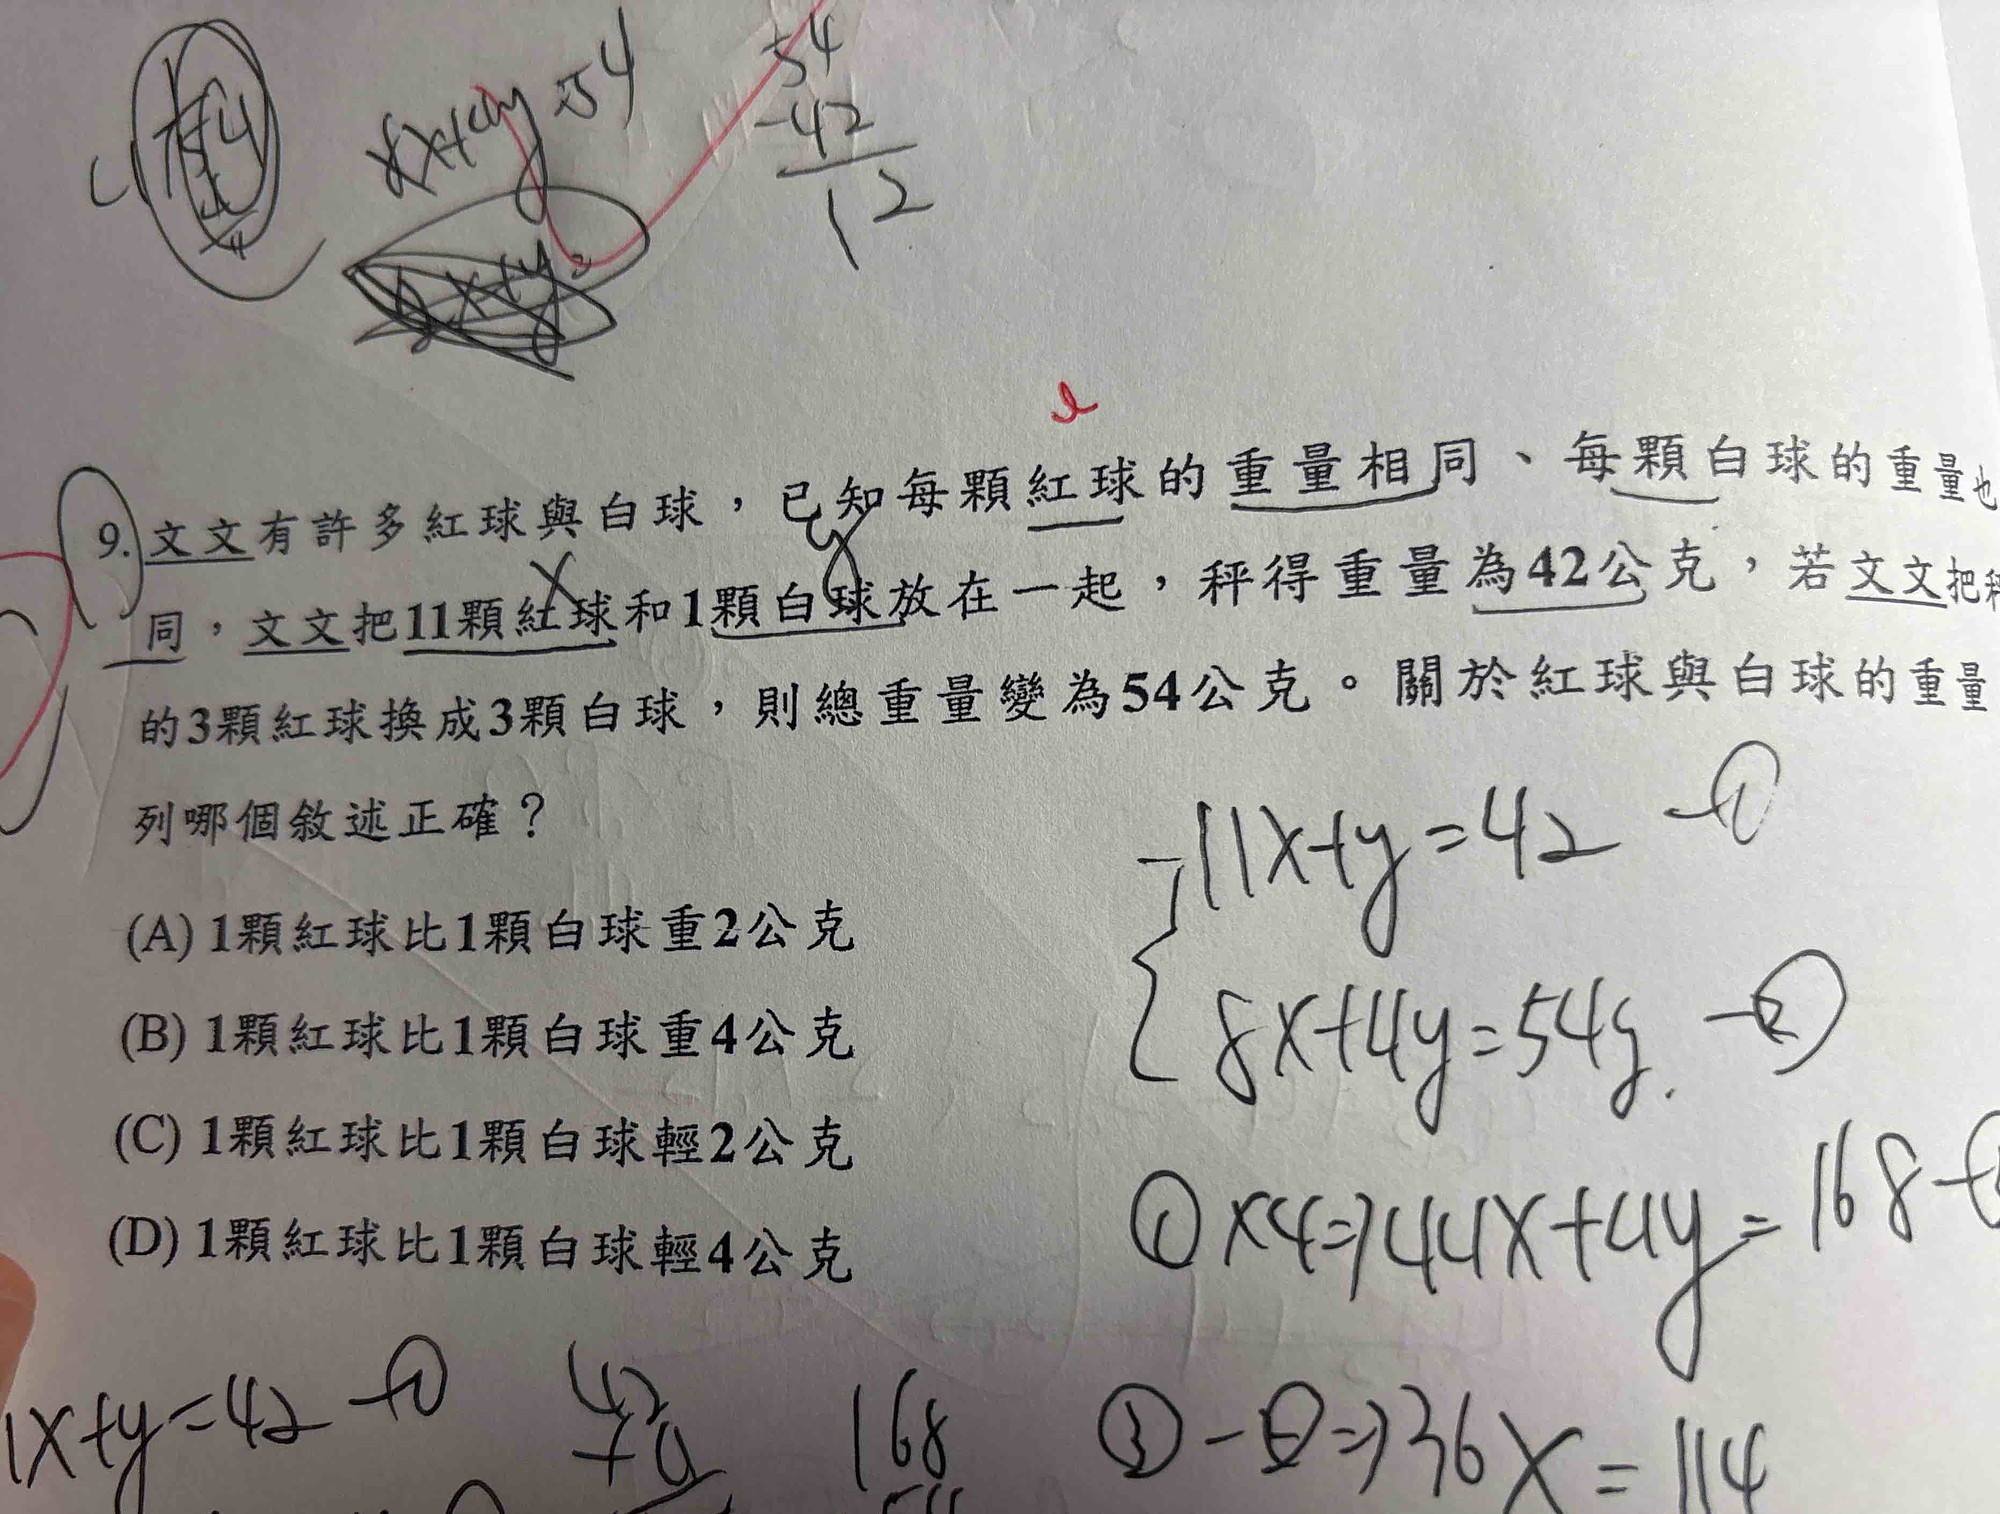 8x+4y=54
54
-42
12
9. 文文有許多紅球與白球，已知每顆紅球的重量相同、每顆白球的重量也
x y
同，文文把11顆紅球和1顆白球放在一起，秤得重量為42公克，若文文把秤
的3顆紅球換成3顆白球，則總重量變為54公克。關於紅球與白球的重量
列哪個敘述正確？
(A) 1顆紅球比1顆白球重2公克
(B) 1顆紅球比1顆白球重4公克
(C) 1顆紅球比1顆白球輕2公克
(D) 1顆紅球比1顆白球輕4公克
11x+y=42 -①
8x+4y=54g. -②
①x4=>44x+4y=168-
③-②=>36x=114
1x+y=42 -①
42
168